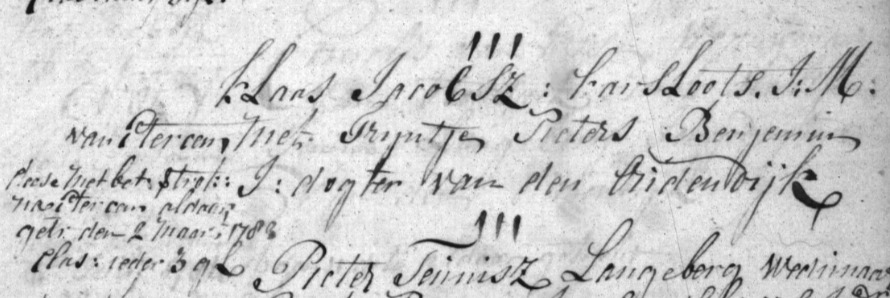 III
Klaas Jacobsz: Karsloots. J: M:
van Itercon, met Tryntje Pieters Benjemin
J: dogter van den Oudendijk
deese met bet:
na Itercon aldaar
getr. den 2 Maart 1783
Clas: ieder 3 gl
III
Pieter Teunisz Langeberg Weduwnaar